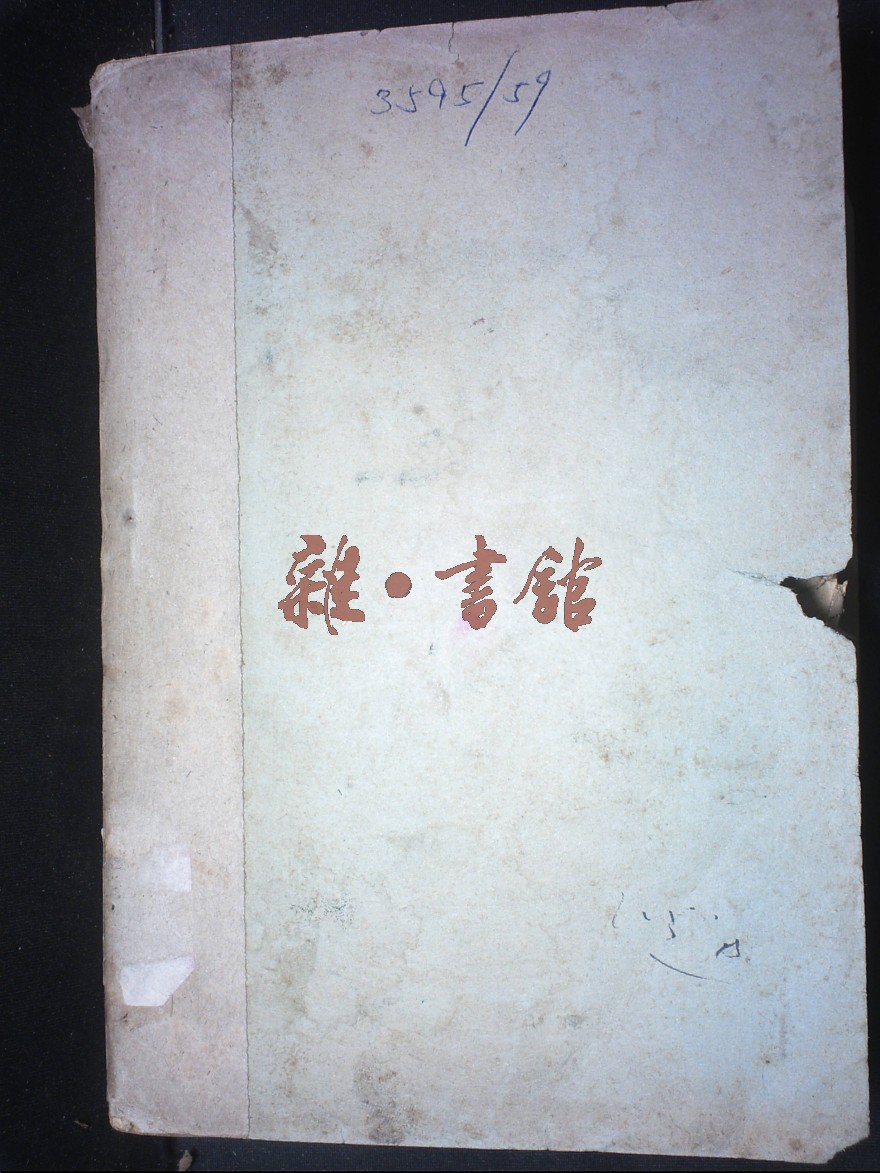 3595/59
雜·書館